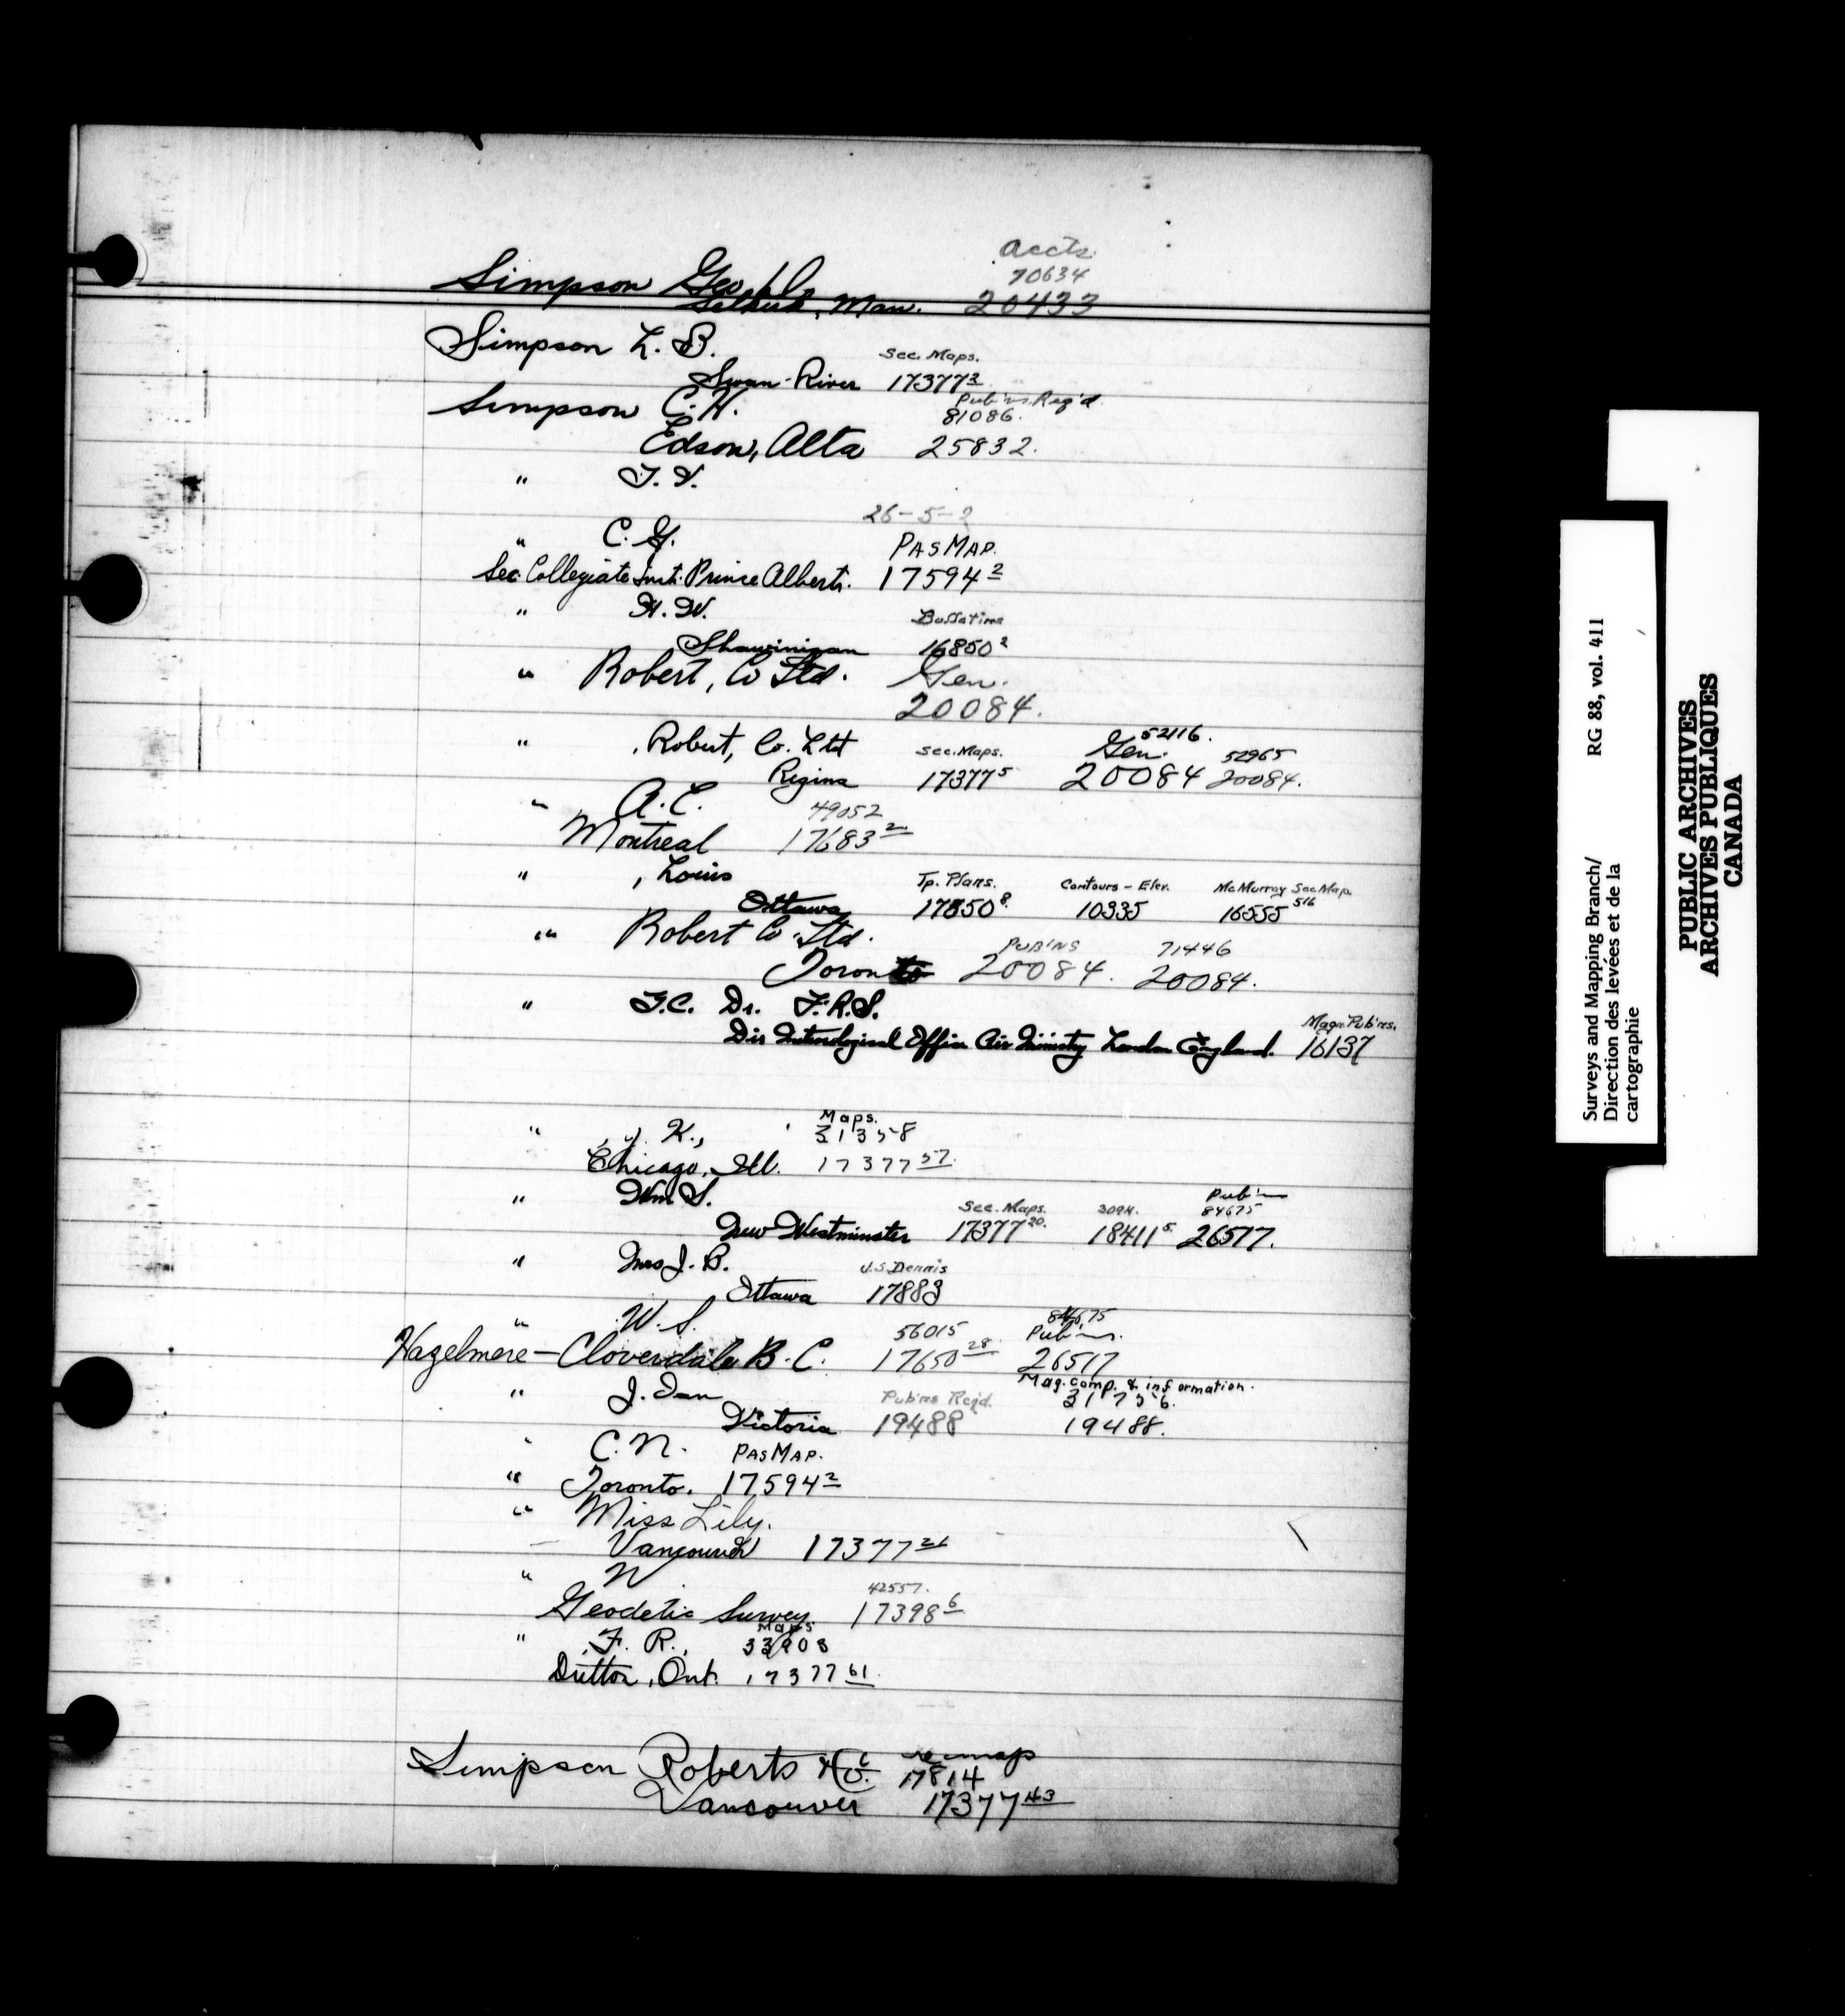 Accts.
70634
Simpson Geo.
Selkirk, Man. 20433
Simpson L. B. Sec. Maps.
Swan-River 17377 2
Simpson C. H. Pub'ns. Req'd.
81086.
Edson, Alta 25832.
"
26-5-2
" C. G. PAS MAP.
Sec. Collegiate Inst. Prince Albert. 17594 2
" H. W.
Shawinigan 16850 2
" Robert, Co Ltd. Gen.
20084.
52116.
" , Robert, Co. Ltd Sec. Maps. Gen. 52965
Regina 17377 5 20084 20084.
" A. C. 49052
Montreal 17683 2
" , Louis Tp. Plans. Contours - Elev. McMurray Sec Map.
Ottawa 17850 8. 10335 16555 516
" Robert Co. Ltd. PUB'NS 71446
Toronto 20084. 20084.
" G.C. Dr. F.R.S. Magn. Pub'ns.
Dir Office Air Ministry London England. 16137
Maps.
" , J. K., 31358
Chicago, Ill. 17377 57.
" Wm S. Sec. Maps. 3094. Pub'ns 84675
New Westminster 17377 20. 18411 5. 26517.
" Mrs J. B. J.S. Dennis
Ottawa 17883
" W. S. 56015 84675 Pub'ns.
Hazelmere - Cloverdale B. C. 17650 28. 26517
" J. Ian Pub'ns Req'd. Mag. comp. & information.
31756.
Victoria 19488 19488.
" C. N. PAS MAP.
" Toronto. 17594 2
" Miss Lily.
Vancouver 17377 21
" N
42557.
Geodetic Survey. 17398 6
Maps
" , F. R., 33903
Dutton, Ont. 17377 61.
Simpson Roberts & Co. re map
17814
Vancouver 17377 43
Surveys and Mapping Branch/ RG 88, vol. 411
Direction des levées et de la
cartographie
PUBLIC ARCHIVES
ARCHIVES PUBLIQUES
CANADA